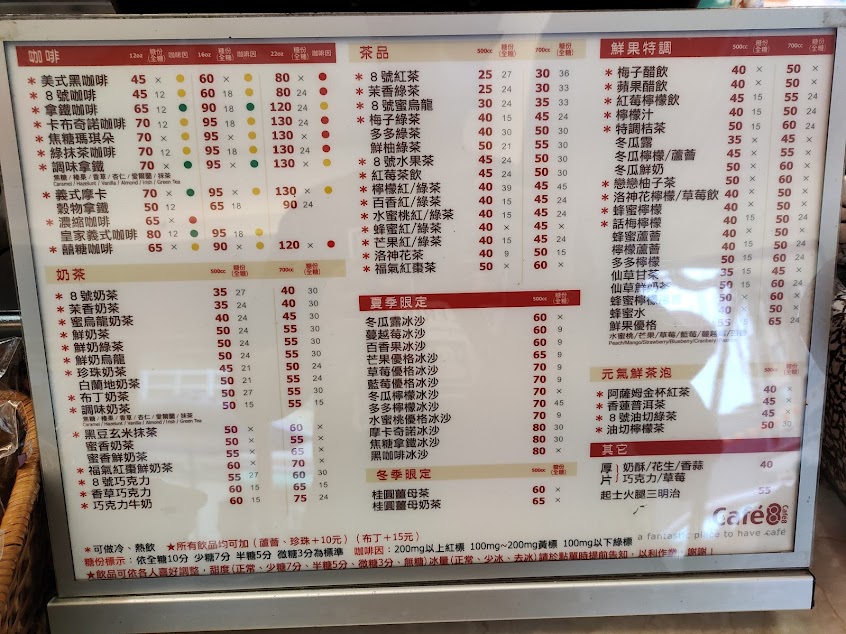 咖啡 12oz 糖份(全糖) 咖啡因 16oz 糖份(全糖) 咖啡因 22oz 糖份(全糖) 咖啡因
*美式黑咖啡 45 × 60 × 80 ×
*8號咖啡 45 12 60 18 80
*拿鐵咖啡 65 12 90 18 120 24
*卡布奇諾咖啡 70 12 95 18 130 24
*焦糖瑪琪朵 70 × 95 × 130 ×
*綠抹茶咖啡 70 12 95 18 130 24
*調味拿鐵 70 × 95 × 130 ×
焦糖/榛果/香草/杏仁/愛爾蘭/抹茶
Caramel / Hazelnut / Vanilla / Almond / Irish / Green Tea
*義式摩卡 70 × 95 × 130 ×
穀物拿鐵 50 12 65 18 90 24
*濃縮咖啡 65 ×
皇家義式咖啡 80 12 95 18
*囍糖咖啡 65 × 90 × 120 ×
奶茶 500cc 糖份(全糖) 700cc 糖份(全糖)
*8號奶茶 35 27 40 30
*茉香奶茶 35 24 40 30
*蜜烏龍奶茶 40 24 45 30
*鮮奶茶 50 24 55 30
*鮮奶綠茶 50 24 55 30
*鮮奶烏龍 50 24 55 30
*珍珠奶茶 45 21 50 24
白蘭地奶茶 50 21 55 24
*布丁奶茶 50 27 55 30
*調味奶茶 50 15 55 15
焦糖/榛果/香草/杏仁/愛爾蘭/抹茶
Caramel / Hazelnut / Vanilla / Almond / Irish / Green Tea
*黑豆玄米抹茶 50 × 60 ×
蜜香奶茶 50 × 55 ×
蜜香鮮奶茶 55 × 65 ×
*福氣紅棗鮮奶茶 60 × 70 ×
*8號巧克力 55 27 60 30
*香草巧克力 60 15 65 15
*巧克力牛奶 60 15 75 24
茶品 500cc 糖份(全糖) 700cc 糖份(全糖)
*8號紅茶 25 27 30 36
*茉香綠茶 25 24 30 33
*8號蜜烏龍 30 24 35 33
*梅子綠茶 40 × 50 ×
多多綠茶 40 30 50 45
鮮柚綠茶 50 21 55 30
*8號水果茶 45 24 50 30
*紅莓茶飲 40 × 50 ×
*檸檬紅/綠茶 40 39 45 45
*百香紅/綠茶 40 15 45 24
*水蜜桃紅/綠茶 40 15 45 24
*蜂蜜紅/綠茶 40 × 45 ×
*芒果紅/綠茶 40 15 45 24
*洛神花茶 40 9 50 15
*福氣紅棗茶 50 × 60 ×
夏季限定 500cc 糖份(全糖)
冬瓜露冰沙 60 ×
蔓越莓冰沙 60 9
百香果冰沙 60 9
芒果優格冰沙 65 9
草莓優格冰沙 70 9
藍莓優格冰沙 70 9
冬瓜檸檬冰沙 70 ×
多多檸檬冰沙 70 45
水蜜桃優格冰沙 70 9
摩卡奇諾冰沙 80 30
焦糖拿鐵冰沙 80 30
黑咖啡冰沙 80 ×
冬季限定 500cc 糖份(全糖)
桂圓薑母茶 60 ×
桂圓薑母奶茶 65 ×
鮮果特調 500cc 糖份(全糖) 700cc 糖份(全糖)
*梅子醋飲 40 × 50 ×
*蘋果醋飲 40 × 50 ×
*紅莓檸檬飲 45 15 55 24
*檸檬汁 40 15 50 24
*特調桔茶 50 15 60 24
冬瓜露 35 × 45 ×
冬瓜檸檬/蘆薈 45 × 55 ×
冬瓜鮮奶 50 × 60 ×
*戀戀柚子茶 50 × 60 ×
*洛神花檸檬/草莓飲 40 × 50 ×
*蜂蜜檸檬 40 × 50 ×
*話梅檸檬 40 15 50 24
蜂蜜蘆薈 40 × 50 ×
蘆梅檸檬 40 15 50 24
多多檸檬 50 24
仙草甘茶 35 15 45
仙草鮮奶
蜂蜜檸檬
蜂蜜水 40 × 50 ×
鮮果優格 65 24
水蜜桃/芒果/草莓/藍莓/蔓越莓
元氣鮮茶泡
*阿薩姆金杯紅茶 40 ×
*香蓮普洱茶 45 ×
*8號油切綠茶 45 ×
*油切檸檬茶 50 30
其它
厚片 奶酥/花生/香蒜 巧克力/草莓 40
起士火腿三明治 55
Café8
a fantastic place to have cafe
*可做冷、熱飲 ★所有飲品均可加(蘆薈、珍珠+10元)(布丁+15元)
糖份標示:依全糖10分 少糖7分 半糖5分 微糖3分為標準 咖啡因:200mg以上紅標 100mg~200mg黃標 100mg以下綠標
★飲品可依各人喜好調整,甜度(正常、少糖7分、半糖5分、微糖3分、無糖)冰量(正常、少冰、去冰)請於點單時提前告知,以利作業,謝謝!